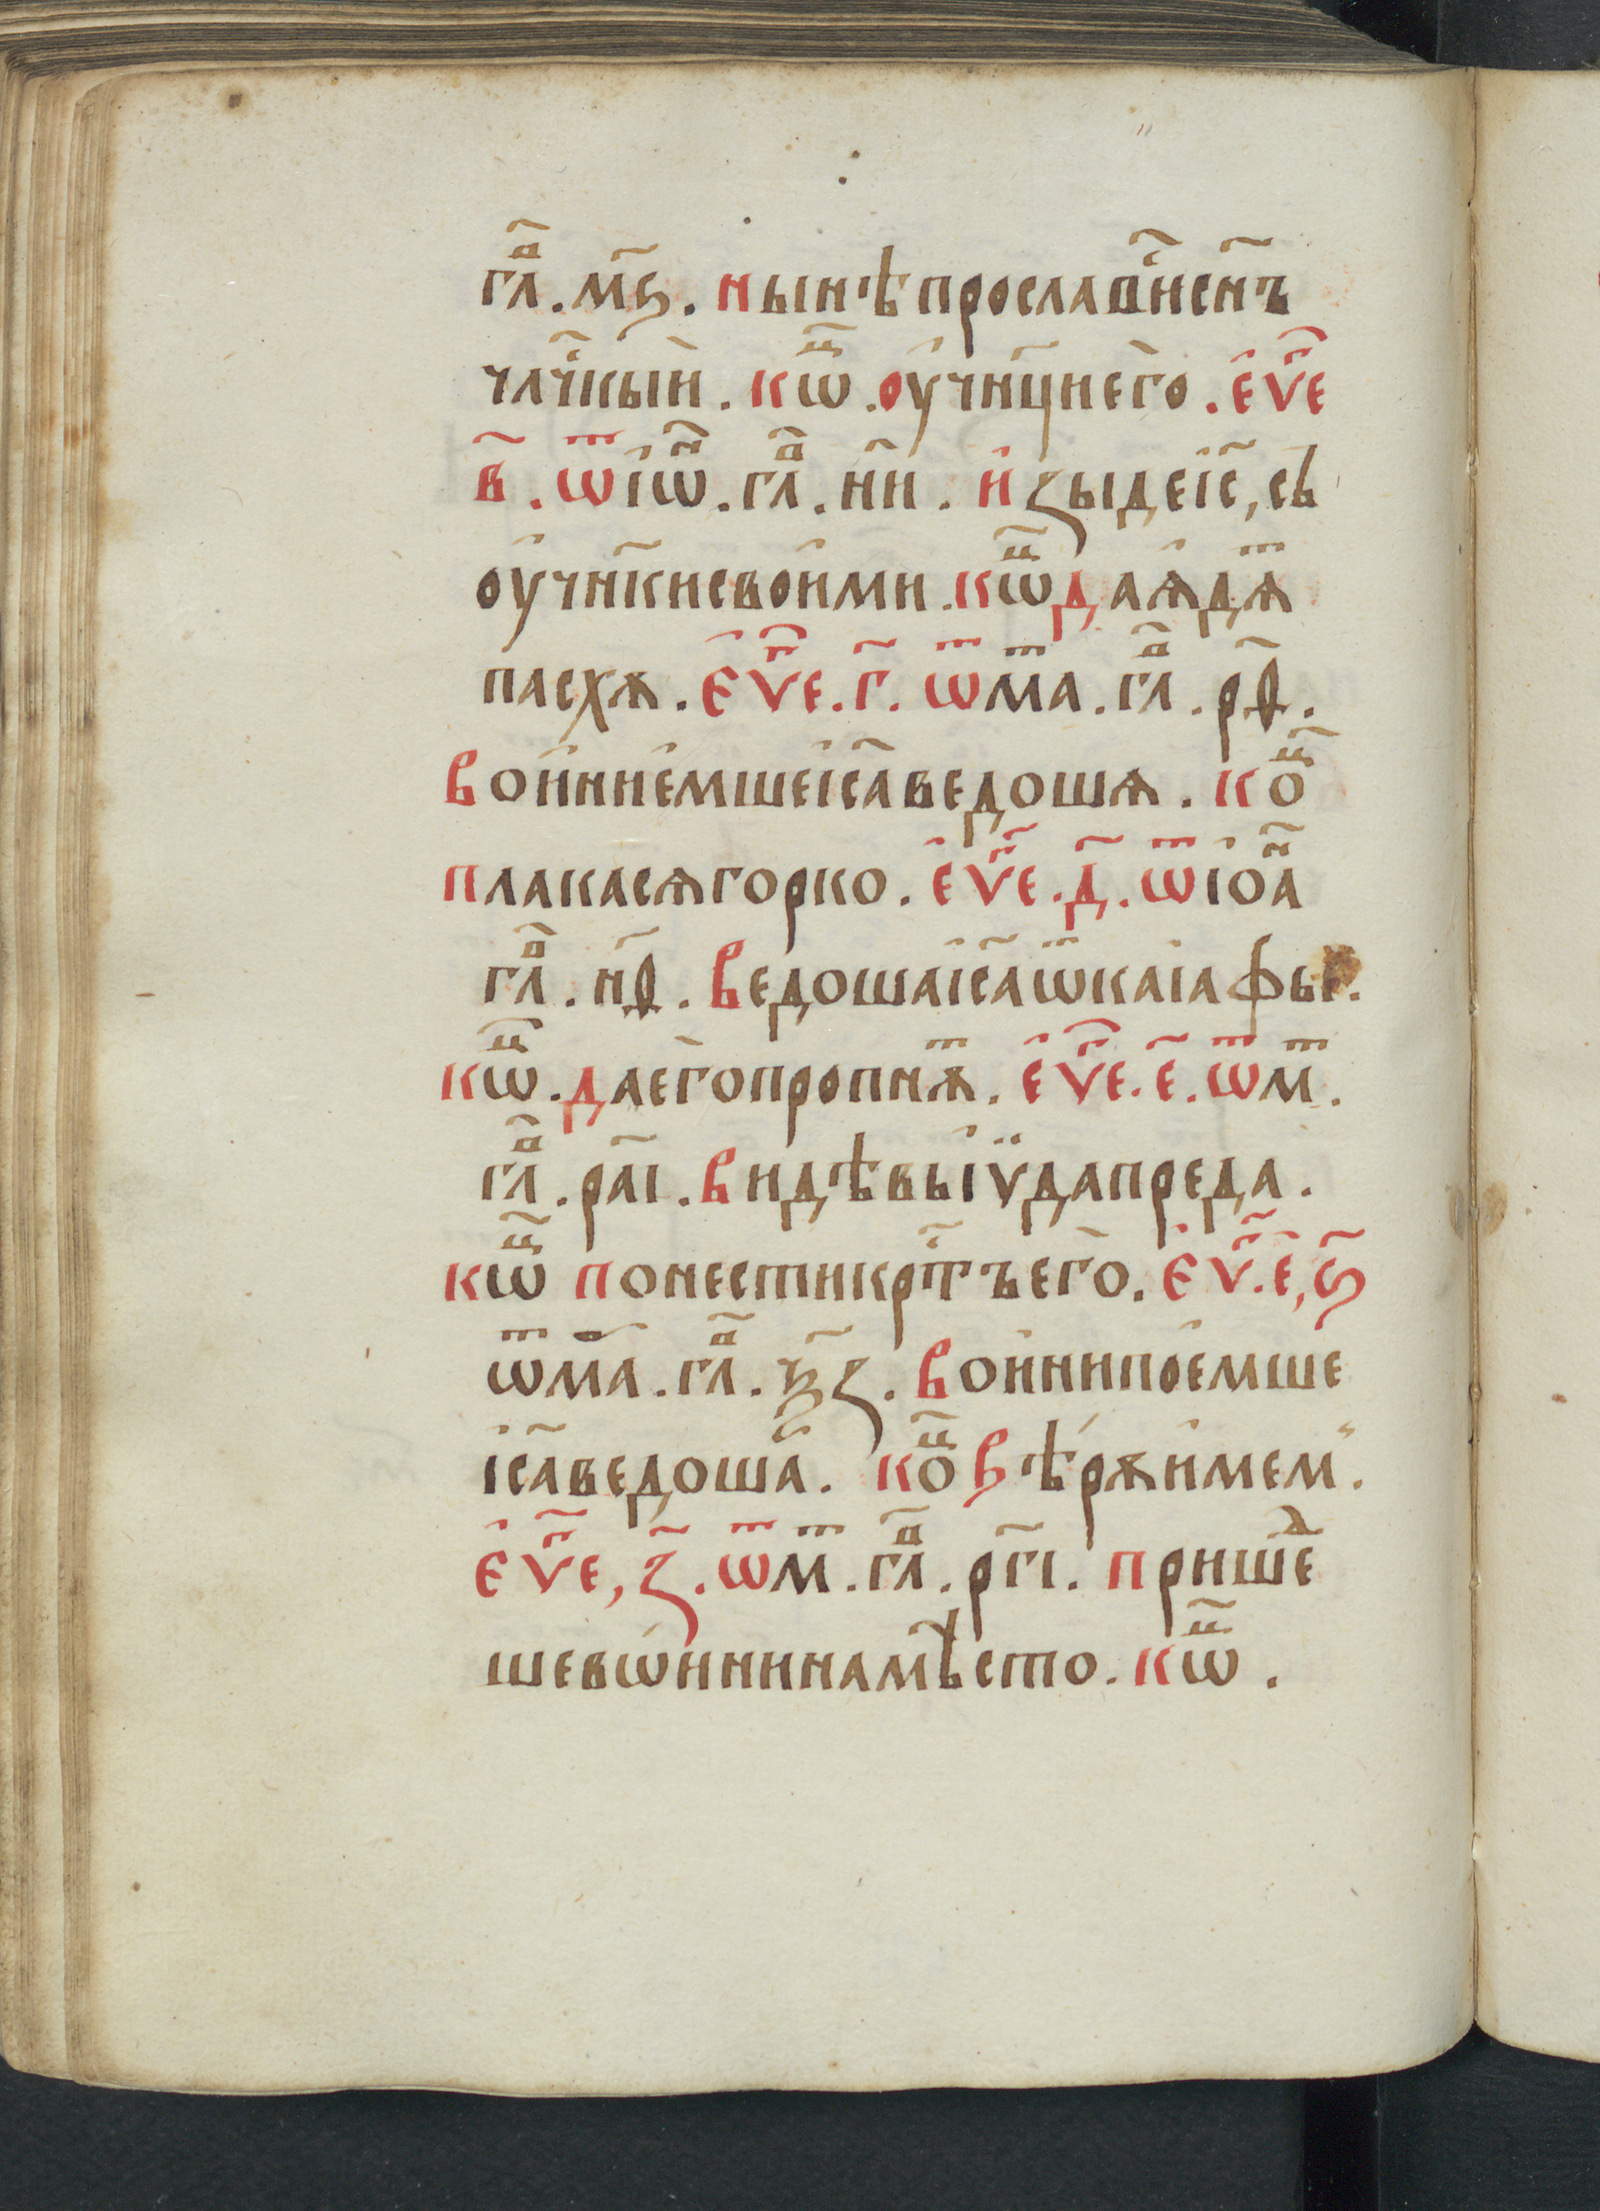 гл҃в. мѕ҃. нынѣпрославⷭ҇исн҃ъ
члч҃ⷭкыи. кѡⷰ҇. оу҆чн҃циего̀. е҆ѵⷢ҇е
в҃. ѿі҆ѡⷩ҇. глⷡ҇. нн҃. и҆зыдеіс҃, съ
оу҆чн҃киисвои҆ми. кѡⷰ҇даꙗ҆дѧⷮ
пасхѫ. е҆ѵⷢ҇е. г҃. ѿмⷮа. глⷡ҇. рѳ҃.
вои҆ние҆мшеі҆с҃аведошѧ. коⷰ҇
плакасѧгорко. е҆ѵⷢ҇е. д҃. ѿі҆оⷩ҇а
глⷡ҇. нѳ҃. ведошаі҆с҃аѿкаіафы.
кѡⷰ҇. даего̀пропнѫⷮ. е҆ѵⷢ҇е. е҃. ѿмⷮ.
глⷡ҇. раі҃. видѣвыі҆ѵ̈дапреда.
кѡⷰ҇ понестикрⷭ҇тъего̀. е҆ѵⷢ҇. е, ѕ҃
ѿма. глⷡ҇. ѯз҃. вои҆нипое҆мше
і҆с҃аведоша. коⷰ҇ вѣ́рѫи҆мем.
е҆ѵⷢ҇е, з҃. ѿмⷮ. глⷡ҇. ргі҃. пришеⷣ
шевѡ́нинамѣсто. кѡⷰ҇.